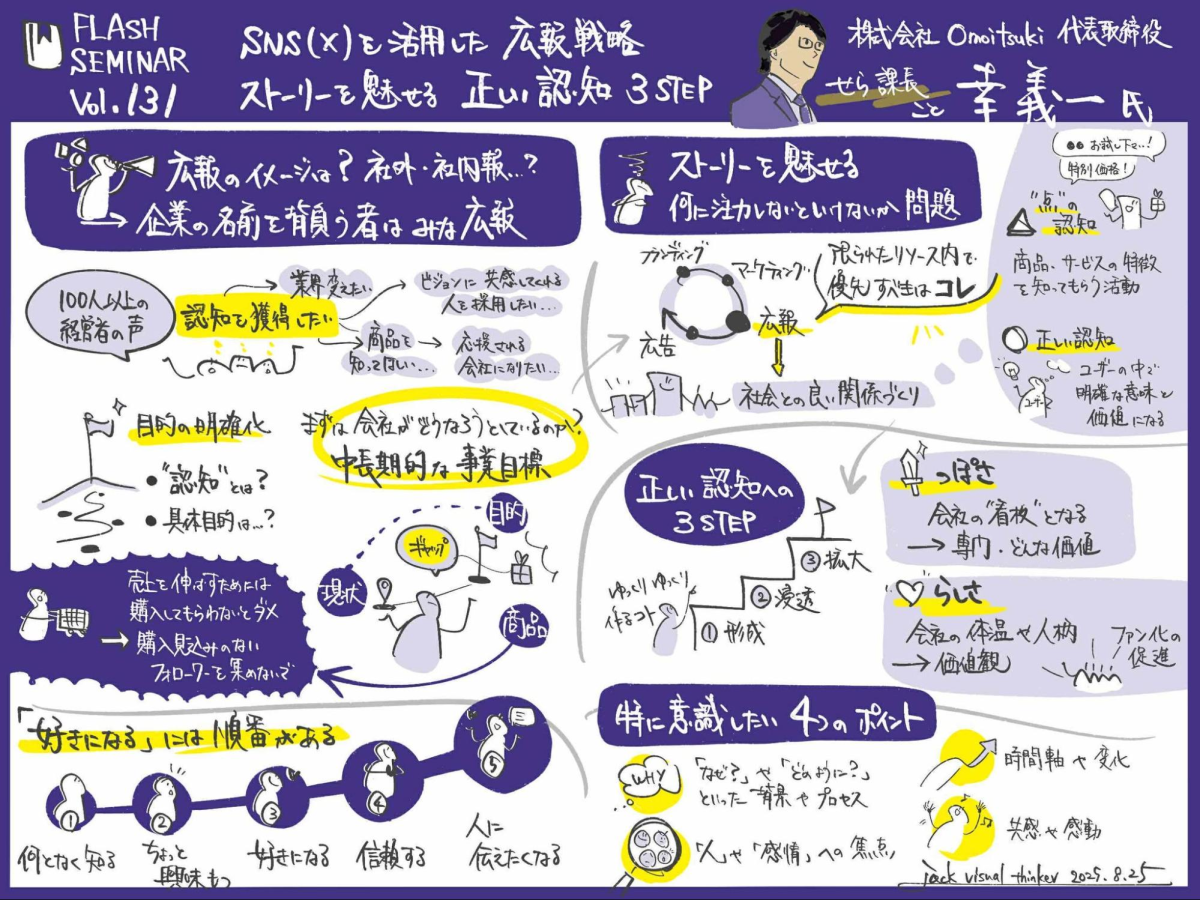 FLASH
SEMINAR
Vol.131
SNS(X)を活用した 広報戦略
ストーリーを魅せる 正しい認知 3STEP
株式会社 Omoitsuki 代表取締役
せら課長
こと 幸義一氏
広報のイメージは？ 社外・社内報…?
→ 企業の名前を背負う者はみな広報
100人以上の
経営者の声
認知を獲得したい
業界変えたい
ビジョンに共感してくれる
人を採用したい…
商品を
知ってほしい…
応援される
会社になりたい…
目的の明確化
• "認知"とは？
• 具体目的は…?
まずは会社がどうなろうとしているのか?
中長期的な事業目標
現状
目的
ギャップ
商品
売上を伸ばすためには
購入してもらわないとダメ
→ 購入見込みのない
フォロワーを集めないで
「好きになる」には順番がある
①
②
③
④
⑤
何となく知る
ちょっと
興味もつ
好きになる
信頼する
人に
伝えたくなる
ストーリーを魅せる
何に注力しないといけないか問題
ブランディング
マーケティング
広報
広告
限られたリソース内で
優先すべきはコレ
社会との良い関係づくり
お試し下さい…!
特別価格!
"点"の
認知
商品、サービスの特徴
を知ってもらう活動
正しい認知
ユーザー
ユーザーの中で
明確な意味と
価値になる
正しい認知への
3STEP
ゆっくりゆっくり
作るコト
①形成
②浸透
③拡大
っぽさ
会社の"看板"となる
→ 専門・どんな価値
らしさ
会社の体温や人柄
→ 価値観
ファン化の
促進
特に意識したい 4つのポイント
WHY
「なぜ?」や「どのように?」
といった背景やプロセス
「人」や「感情」への焦点
時間軸や変化
共感や感動
jack visual thinker 2025.8.25